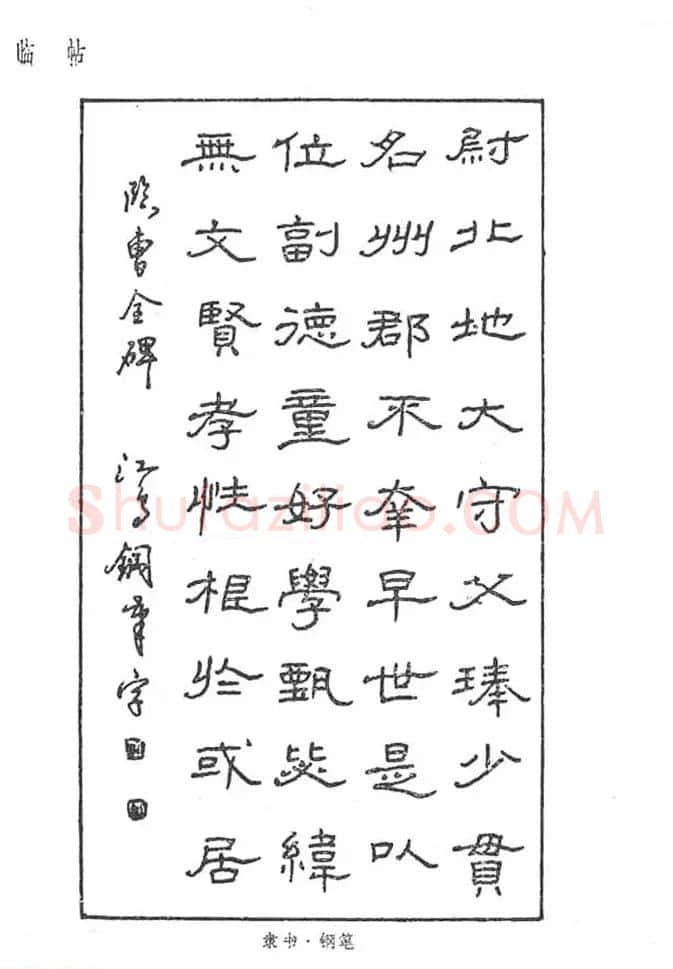 临 帖
尉北地大守父琫少貫
名州郡不幸早世是以
位副德童好學甄毖緯
無文賢孝性根於或居
臨曹全碑 江 鋼筆字
Shufaziliao.COM
隶书·钢笔